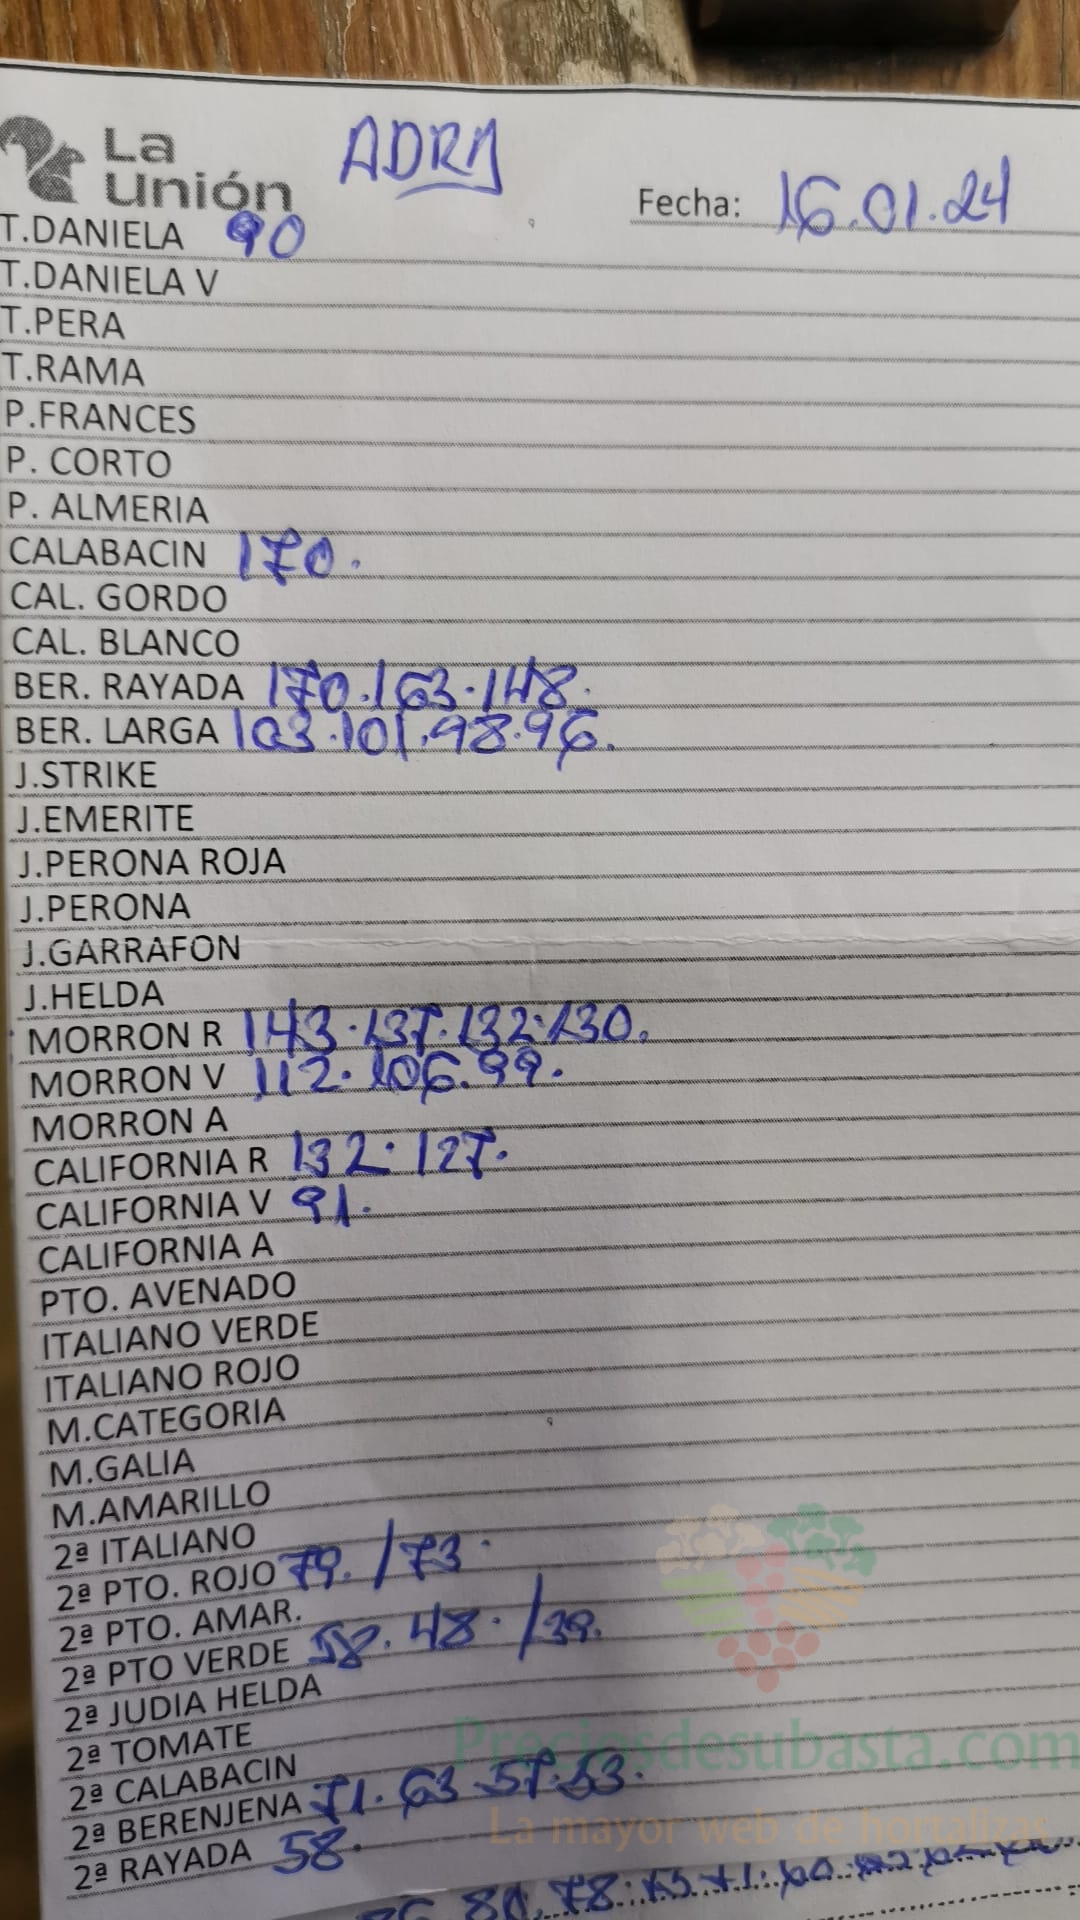 La Unión ADRA Fecha: 16.01.24
T.DANIELA 90
T.DANIELA V
T.PERA
T.RAMA
P.FRANCES
P. CORTO
P. ALMERIA
CALABACIN 170.
CAL. GORDO
CAL. BLANCO
BER. RAYADA 170.163.148.
BER. LARGA 103.101.98.96.
J.STRIKE
J.EMERITE
J.PERONA ROJA
J.PERONA
J.GARRAFON
J.HELDA
MORRON R 143.137.132.130.
MORRON V 112.106.99.
MORRON A
CALIFORNIA R 132.127.
CALIFORNIA V 91.
CALIFORNIA A
PTO. AVENADO
ITALIANO VERDE
ITALIANO ROJO
M.CATEGORIA
M.GALIA
M.AMARILLO
2ª ITALIANO
2ª PTO. ROJO 79. /73.
2ª PTO. AMAR.
2ª PTO VERDE 58. 48. /39.
2ª JUDIA HELDA
2ª TOMATE
2ª CALABACIN
2ª BERENJENA 71. 63 57.53.
2ª RAYADA 58.
Preciosdesubasta.com
La mayor web de hortalizas
80.78.